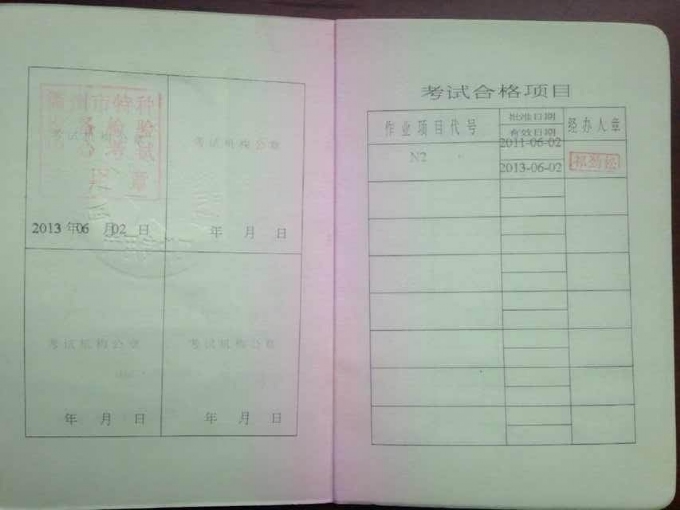 考试机构公章
2013年06月02日
年 月 日
考试机构公章
考试机构公章
年 月 日
年 月 日
考试合格项目
作业项目代号
批准日期
有效日期
经办人章
N2
2011-06-02
2013-06-02